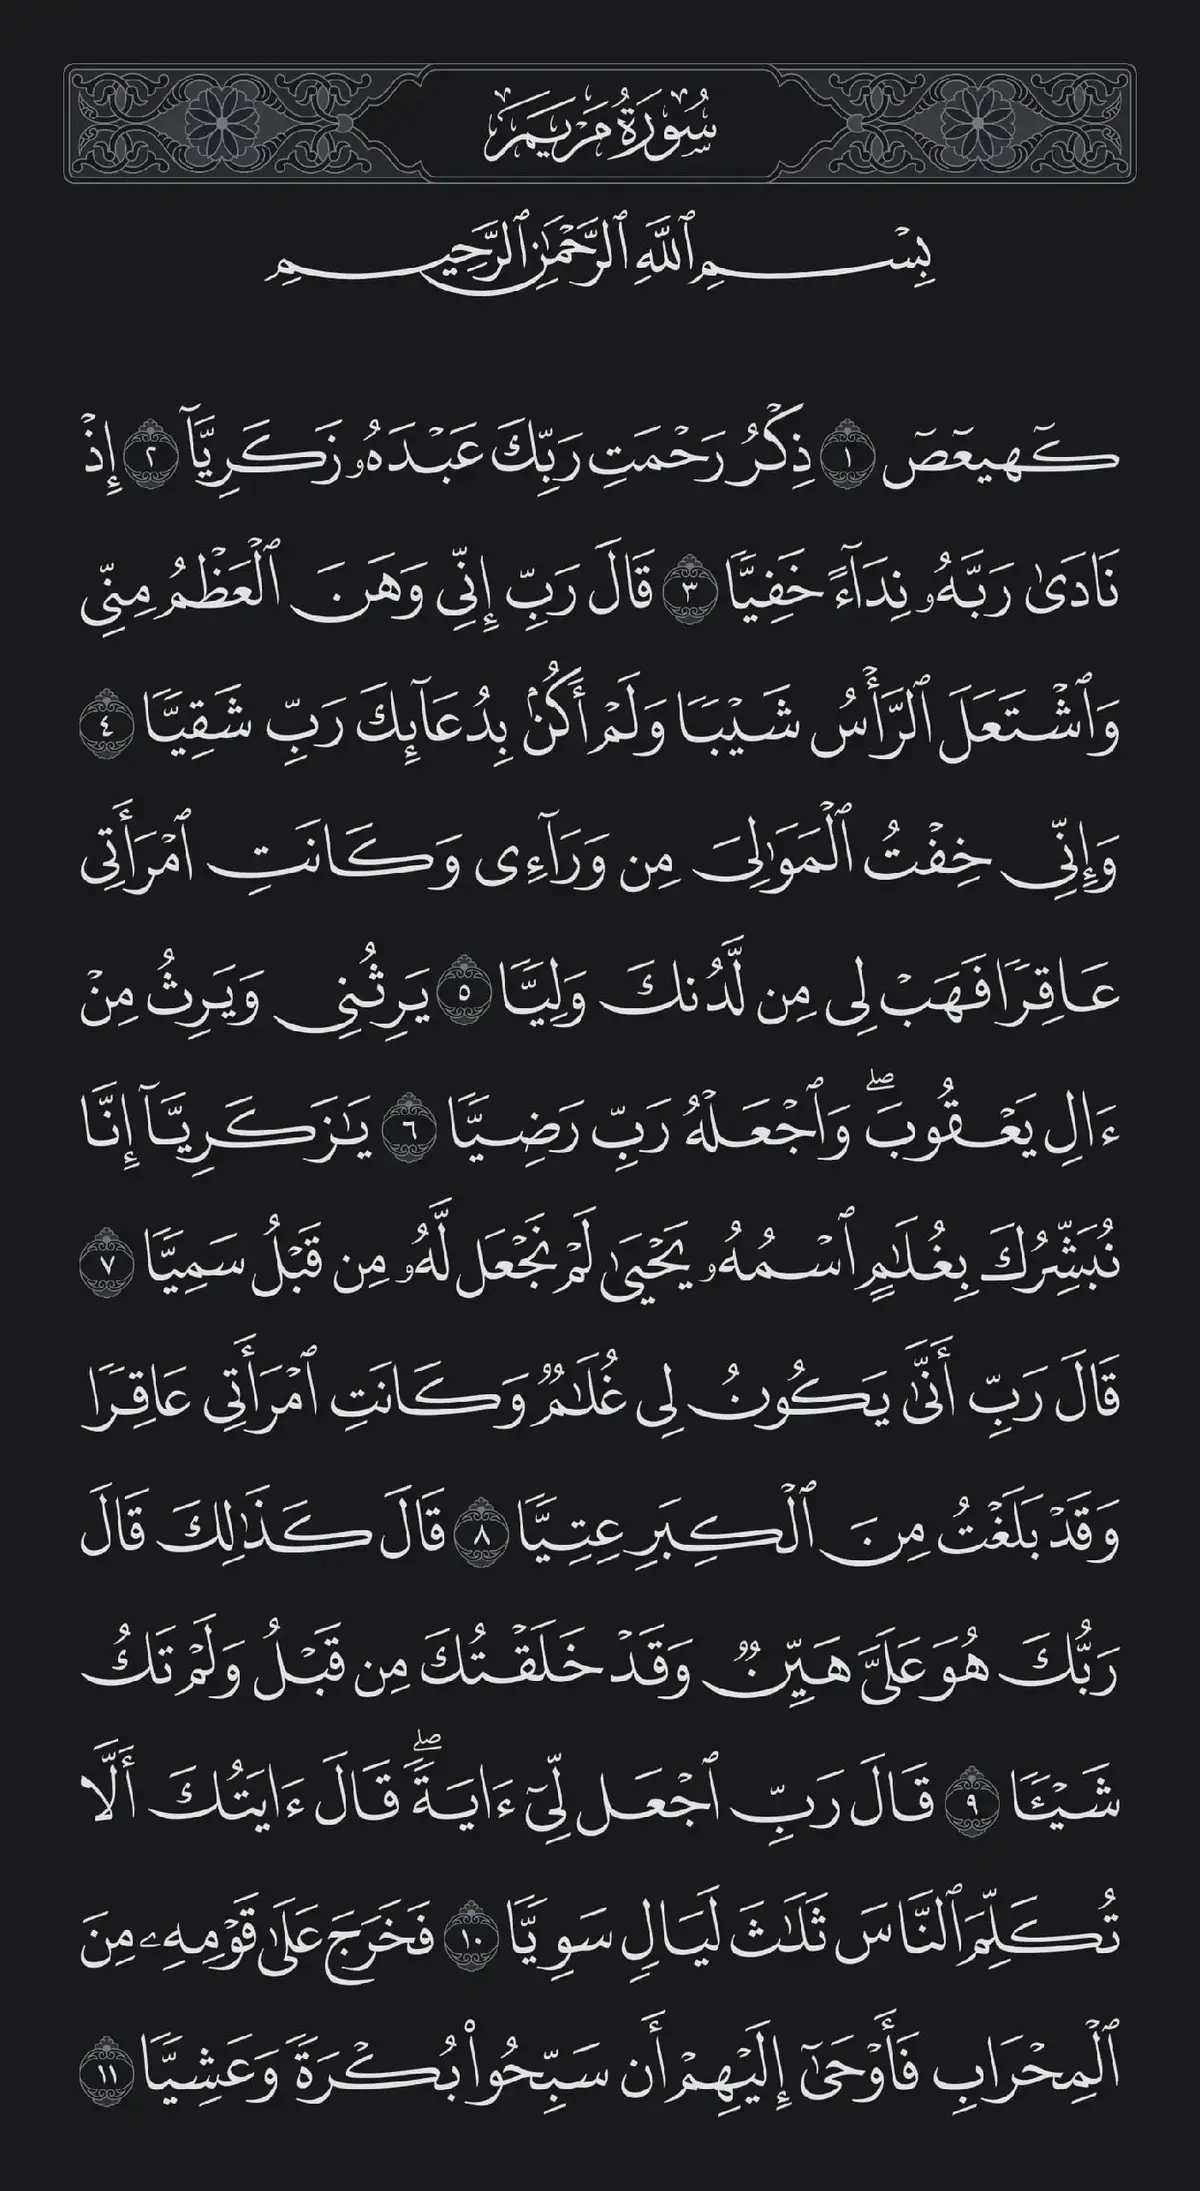 سُورَةُ مَرْيَمَ
بِسْمِ ٱللَّهِ ٱلرَّحْمَٰنِ ٱلرَّحِيمِ
كٓهيعٓصٓ ١ ذِكْرُ رَحْمَتِ رَبِّكَ عَبْدَهُۥ زَكَرِيَّآ ٢ إِذْ
نَادَىٰ رَبَّهُۥ نِدَآءً خَفِيًّا ٣ قَالَ رَبِّ إِنِّى وَهَنَ ٱلْعَظْمُ مِنِّى
وَٱشْتَعَلَ ٱلرَّأْسُ شَيْبًا وَلَمْ أَكُنۢ بِدُعَآئِكَ رَبِّ شَقِيًّا ٤
وَإِنِّى خِفْتُ ٱلْمَوَٰلِىَ مِن وَرَآءِى وَكَانَتِ ٱمْرَأَتِى
عَاقِرًا فَهَبْ لِى مِن لَّدُنكَ وَلِيًّا ٥ يَرِثُنِى وَيَرِثُ مِنْ
ءَالِ يَعْقُوبَ ۖ وَٱجْعَلْهُ رَبِّ رَضِيًّا ٦ يَٰزَكَرِيَّآ إِنَّا
نُبَشِّرُكَ بِغُلَٰمٍ ٱسْمُهُۥ يَحْيَىٰ لَمْ نَجْعَل لَّهُۥ مِن قَبْلُ سَمِيًّا ٧
قَالَ رَبِّ أَنَّىٰ يَكُونُ لِى غُلَٰمٌ وَكَانَتِ ٱمْرَأَتِى عَاقِرًا
وَقَدْ بَلَغْتُ مِنَ ٱلْكِبَرِ عِتِيًّا ٨ قَالَ كَذَٰلِكَ قَالَ
رَبُّكَ هُوَ عَلَىَّ هَيِّنٌ وَقَدْ خَلَقْتُكَ مِن قَبْلُ وَلَمْ تَكُ
شَيْـًٔا ٩ قَالَ رَبِّ ٱجْعَل لِّىٓ ءَايَةً ۖ قَالَ ءَايَتُكَ أَلَّا
تُكَلِّمَ ٱلنَّاسَ ثَلَٰثَ لَيَالٍ سَوِيًّا ١٠ فَخَرَجَ عَلَىٰ قَوْمِهِۦ مِنَ
ٱلْمِحْرَابِ فَأَوْحَىٰٓ إِلَيْهِمْ أَن سَبِّحُوا۟ بُكْرَةً وَعَشِيًّا ١١